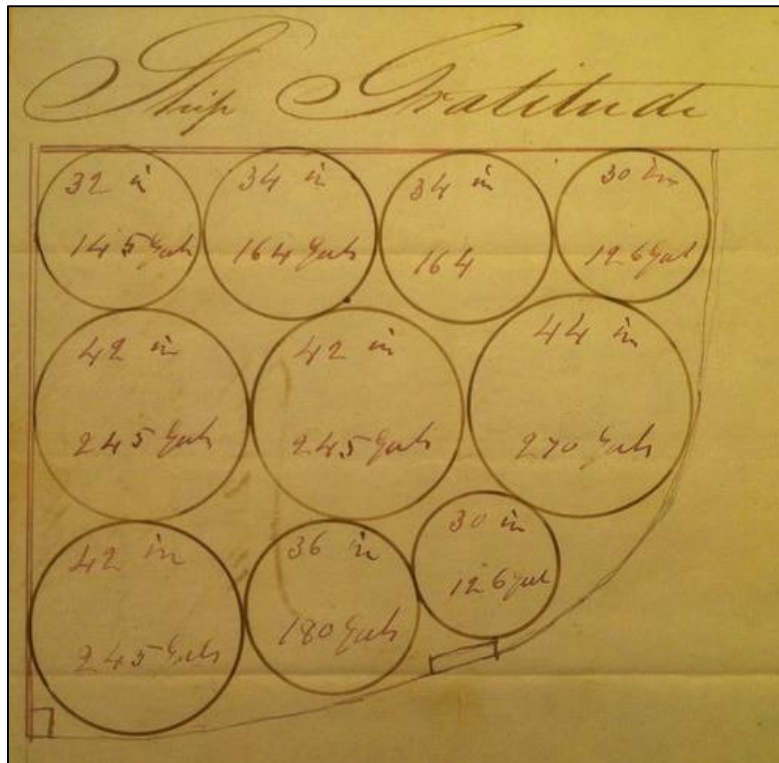 Ship Gratitude
32 in
145 Gals
34 in
164 Gals
34 in
164
30 in
126 Gal
42 in
245 Gals
42 in
245 Gals
44 in
270 Gals
42 in
245 Gals
36 in
180 Gals
30 in
126 Gal